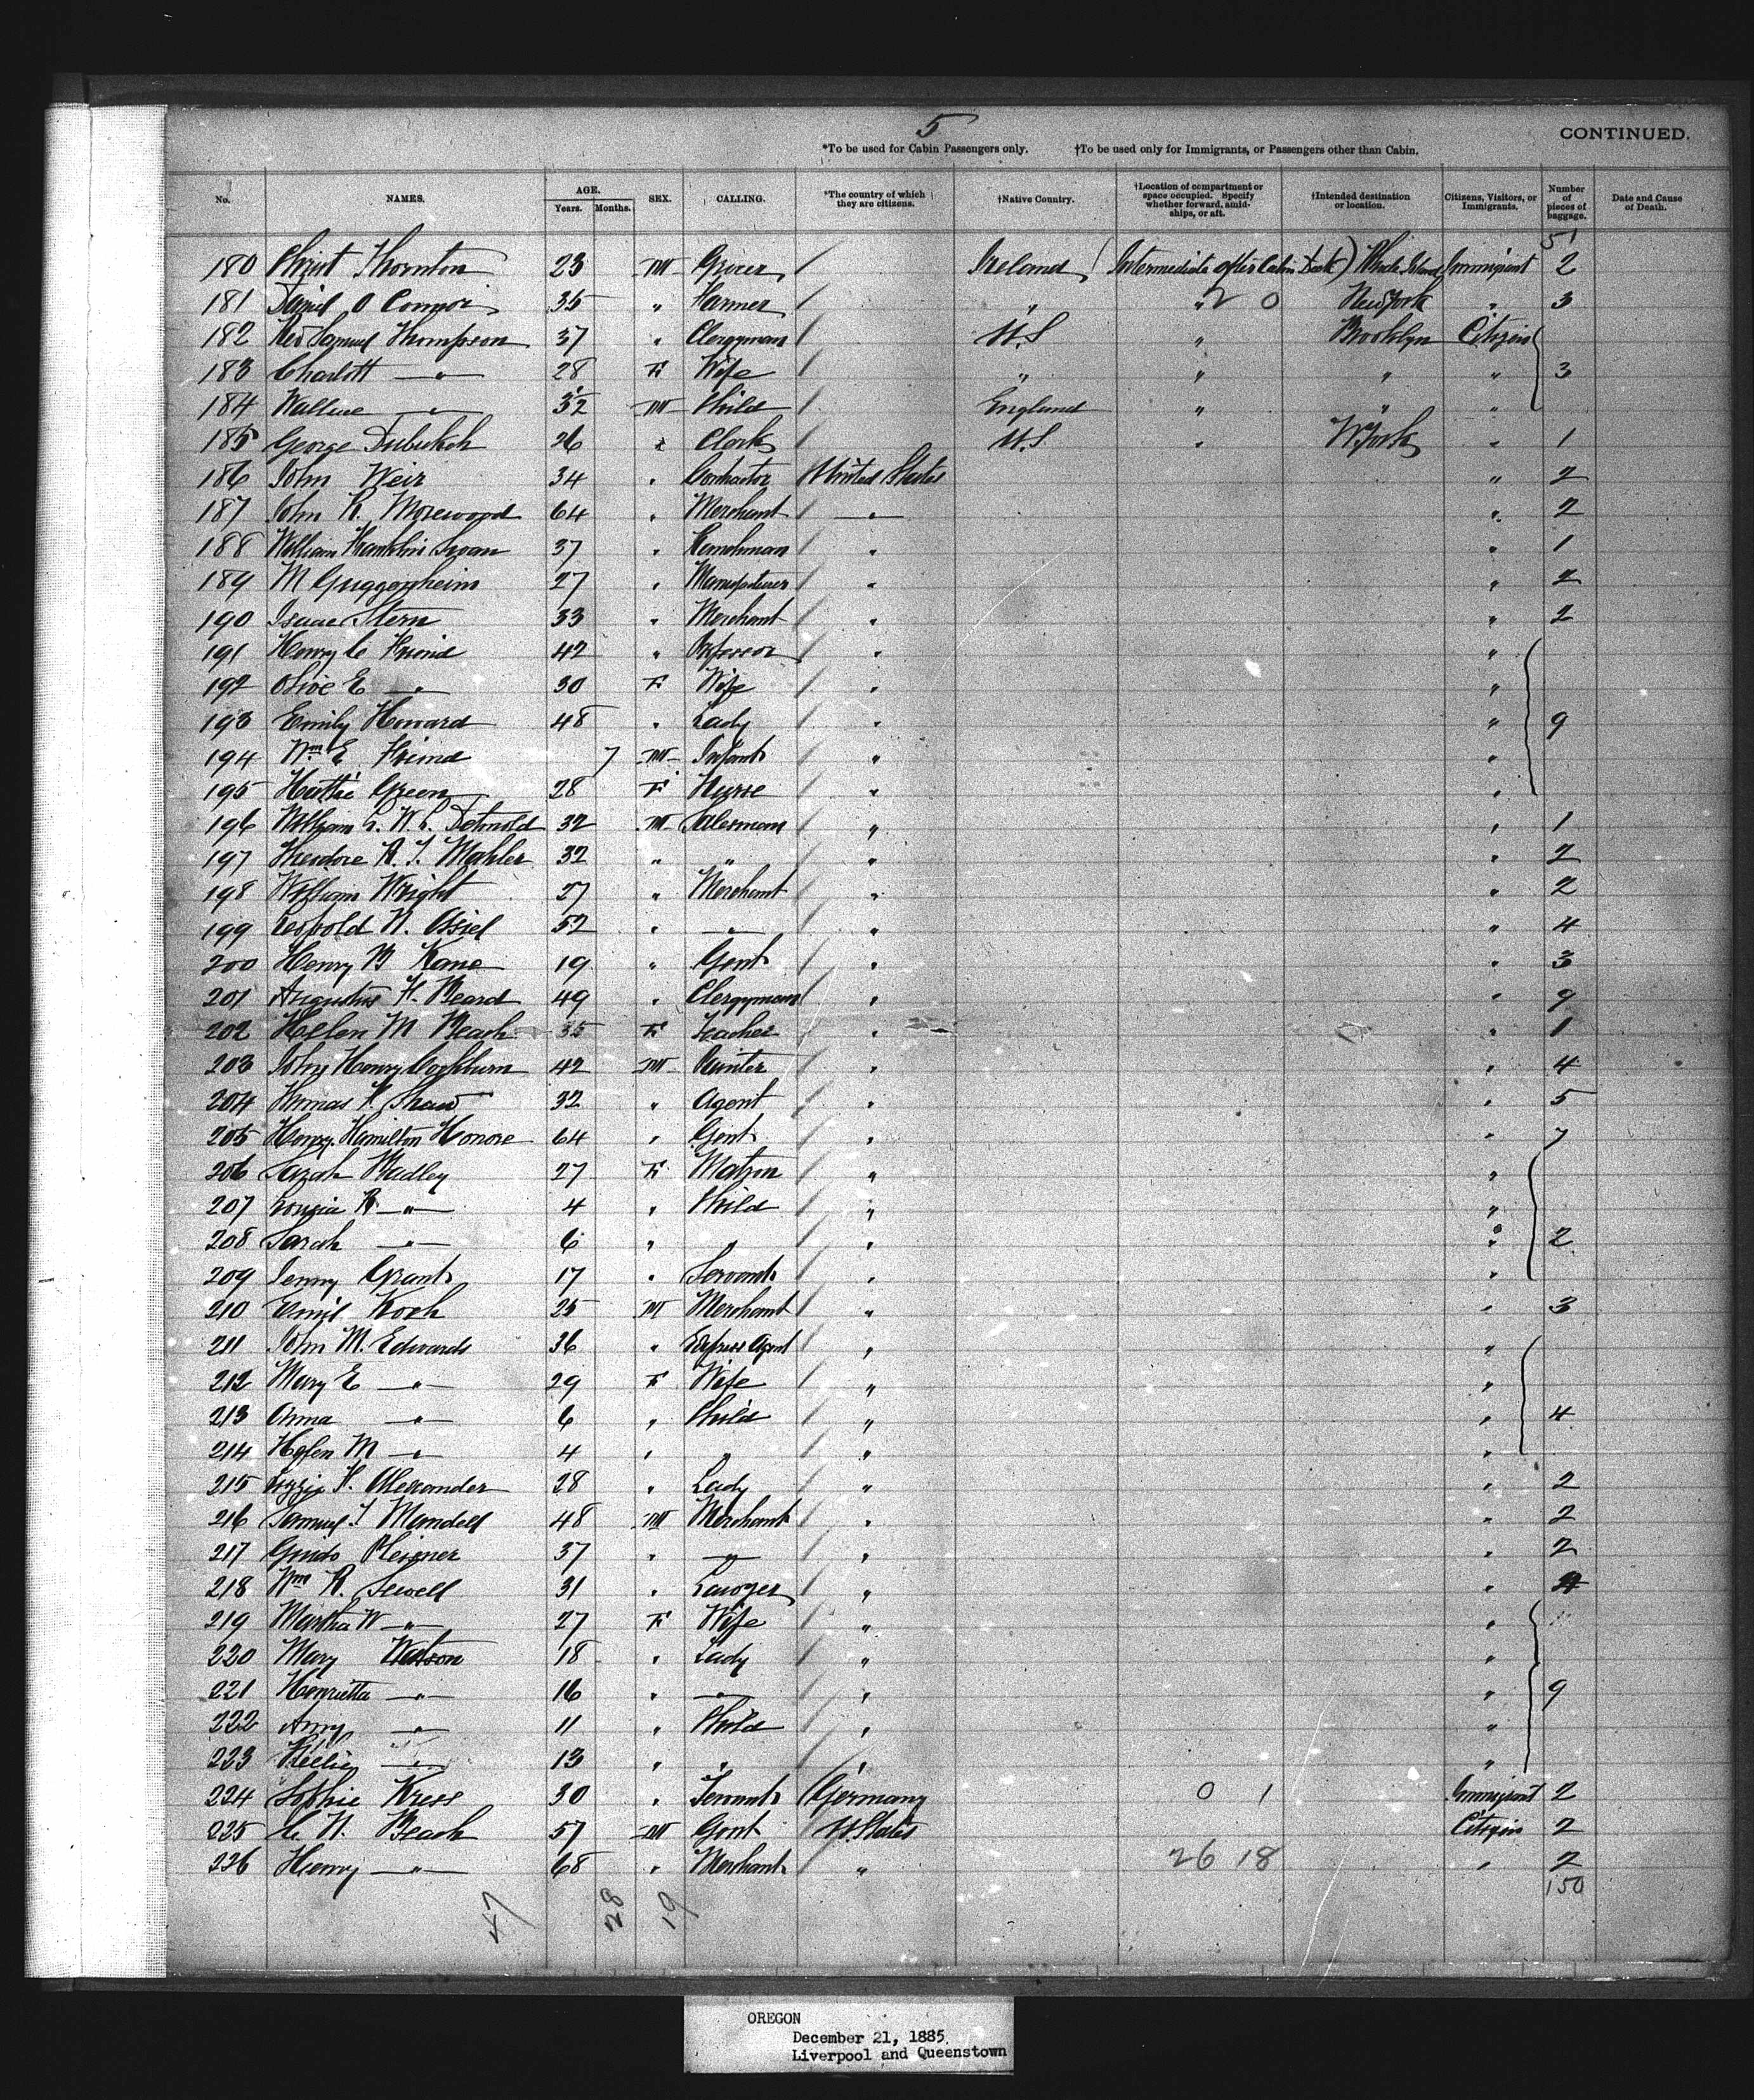 5
CONTINUED.
*To be used for Cabin Passengers only. †To be used only for Immigrants, or Passengers other than Cabin.
No. NAMES. AGE. Years. Months. SEX. CALLING. *The country of which they are citizens. †Native Country. †Location of compartment or space occupied. Specify whether forward, amidships, or aft. †Intended destination or location. Citizens, Visitors, or Immigrants. Number of pieces of baggage. Date and Cause of Death.
51
180 Christ Thornton 23 M Grocer Ireland (Intermediate after Cabin Deck) Rhode Island Immigrant 2
181 David O Connor 35 " Farmer " " 2 0 New York " 3
182 Rev Samuel Thompson 37 " Clergyman U.S " Brooklyn Citizen
183 Charlott —"— 28 F Wife " " " " 3
184 Wallace —"— M Child England " " "
185 George 26 " Clerk U.S " N York " 1
186 John Weir 34 " Contractor United States " 2
187 John R. Morewood 64 " Merchant —"— " 2
188 William Franklin Swan 37 " Ranchman " " 1
189 M Guggenheim 27 " Manufacturer " " 2
190 Isaac Stern 33 " Merchant " " 2
191 Henry C Friend 42 " Professor " "
192 Olive E —"— 30 F Wife " "
193 Emily Howard 48 " Lady " " 9
194 Wm E Friend 7 M Infant " "
195 Hattie Green 28 F Nurse " "
196 William L. W. C. Detmold 32 M Salesman " " 1
197 Theodore R. T. Mahler 32 " " " " 2
198 William Wright 27 " Merchant " " 2
199 Leopold N. Assiel 52 " —"— " " 4
200 Henry B Kane 19 " Gent " " 3
201 Augustus F. Beard 49 " Clergyman " " 9
202 Hellen M Beach 35 F Teacher " " 1
203 John Henry Cockburn 42 M " " 4
204 Thomas F. Shaw 32 " Agent " " 5
205 Henry Hamilton Honore 64 " Gent " " 7
206 Sarah Badley 27 F Matron " "
207 R —"— 4 " Child " "
208 Sarah —"— 6 " " " " 2
209 Jenny Grant 17 " Servant " "
210 Emil Koch 25 M Merchant " " 3
211 John M. Edwards 36 " Express Agent " "
212 Mary E —"— 29 F Wife " "
213 Anna —"— 6 " Child " " 4
214 Helen M —"— 4 " " " "
215 Lizzie F. Alexander 28 " Lady " " 2
216 Samuel J Mandell 48 M Merchant " " 2
217 Guido Pleisner 37 " —"— " " 2
218 Wm R. Sewell 31 " Lawyer " "
219 Martha W —"— 27 F Wife " "
220 Mary Watson 18 " Lady " "
221 Henrietta —"— 16 " —"— " " 9
222 Amy —"— 11 " Child " "
223 Nellie —"— 13 " " " "
224 Sophie Kress 30 " Servant Germany 0 1 Immigrant 2
225 C. N. Beach 57 M Gent U. States Citizen 2
226 Henry —"— 68 " Merchant " 26 18 " 2
150
47 28 19
OREGON
December 21, 1885.
Liverpool and Queenstown